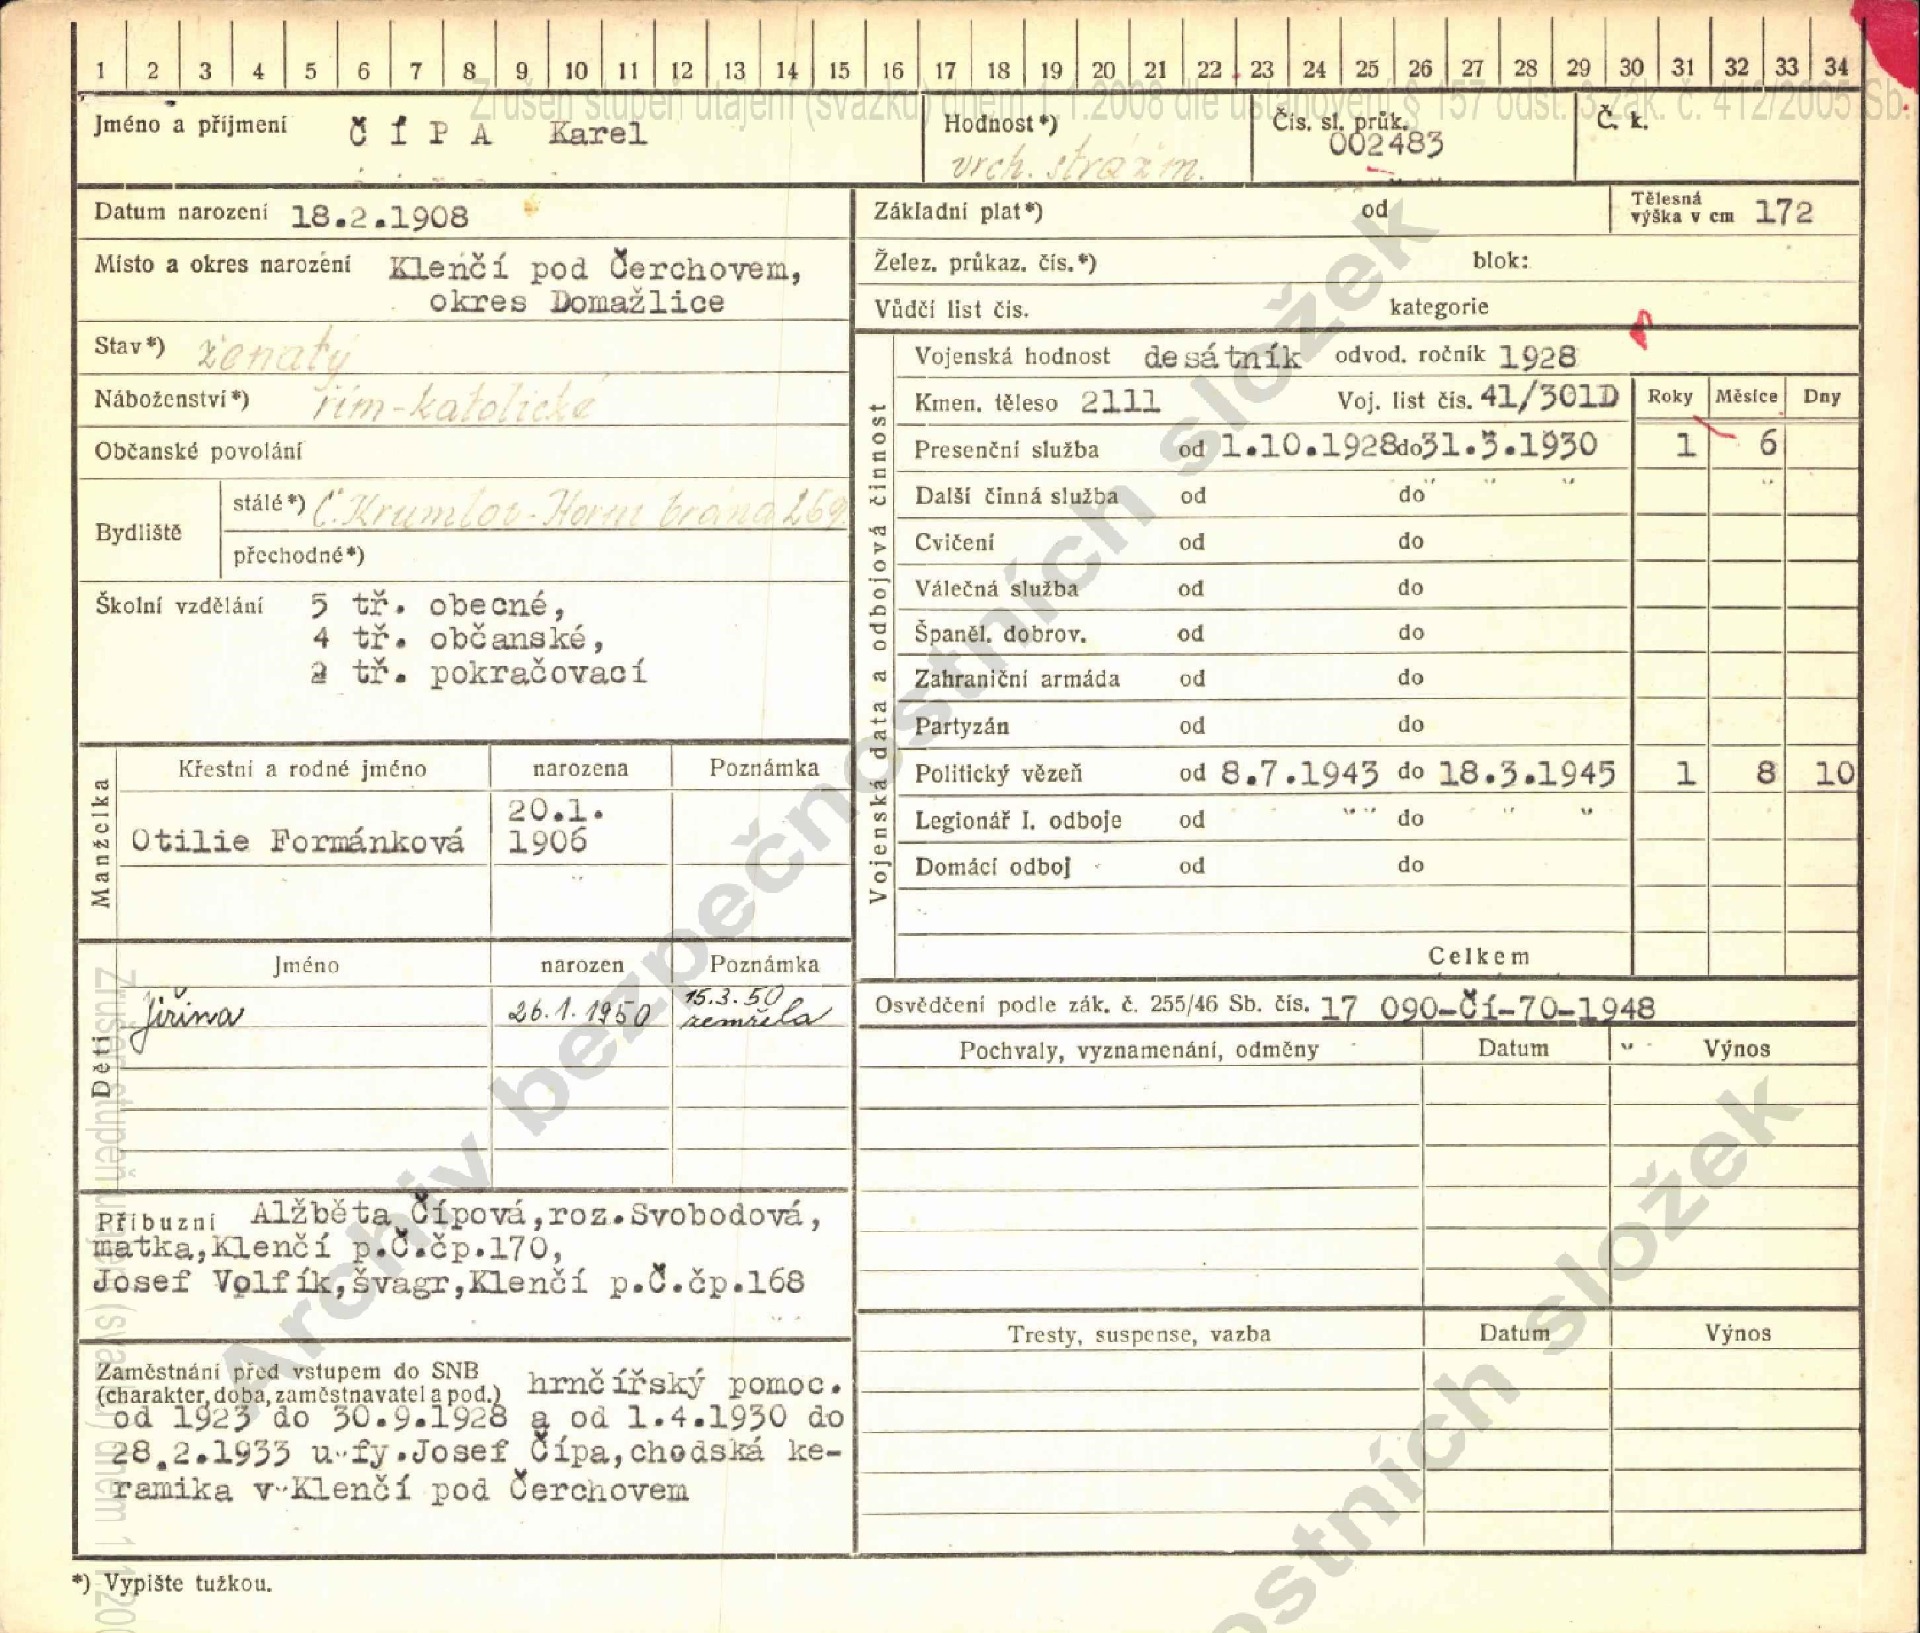 1 2 3 4 5 6 7 8 9 10 11 12 13 14 15 16 17 18 19 20 21 22 23 24 25 26 27 28 29 30 31 32 33 34
Zrušen stupeň utajení (svazku) dnem 1.1.2008 dle ustanovení § 157 odst. 3 zák. č. 412/2005 Sb.
Jméno a příjmení Č Í P A Karel
Hodnost*) vrch. strážm.
Čís. sl. průk. 002483
Č. k.
Datum narození 18.2.1908
Místo a okres narození Klenčí pod Čerchovem,
okres Domažlice
Stav*) ženatý
Náboženství*) řím-katolické
Občanské povolání
Bydliště
stálé*) Č. Krumlov - Horní brána 269.
přechodné*)
Školní vzdělání 5 tř. obecné,
4 tř. občanské,
2 tř. pokračovací
Manželka
Křestní a rodné jméno narozena Poznámka
20.1.
Otilie Formánková 1906
Děti
Jméno narozen Poznámka
Jiřina 26.1.1950 15.3.50
zemřela
Příbuzní Alžběta Čípová,roz.Svobodová,
matka,Klenčí p.Č.čp.170,
Josef Volfík,švagr,Klenčí p.Č.čp.168
Zaměstnání před vstupem do SNB
(charakter, doba, zaměstnavatel a pod.) hrnčířský pomoc.
od 1923 do 30.9.1928 a od 1.4.1930 do
28.2.1933 u fy.Josef Čípa,chodská ke-
ramika v Klenčí pod Čerchovem
Základní plat*) od
Tělesná
výška v cm 172
Želez. průkaz. čís.*) blok:
Vůdčí list čís. kategorie
Vojenská data a odbojová činnost
Vojenská hodnost desátník odvod. ročník 1928
Kmen. těleso 2111 Voj. list čís. 41/301D Roky Měsíce Dny
Presenční služba od 1.10.1928 do 31.3.1930 1 6
Další činná služba od do
Cvičení od do
Válečná služba od do
Španěl. dobrov. od do
Zahraniční armáda od do
Partyzán od do
Politický vězeň od 8.7.1943 do 18.3.1945 1 8 10
Legionář I. odboje od do
Domácí odboj od do
Celkem
Osvědčení podle zák. č. 255/46 Sb. čís. 17 090-Čí-70-1948
Pochvaly, vyznamenání, odměny Datum Výnos
Tresty, suspense, vazba Datum Výnos
*) Vypište tužkou.
Archiv bezpečnostních složek
ostních složek
Zrušen stupeň utajení (svazku) dnem 1.1.200